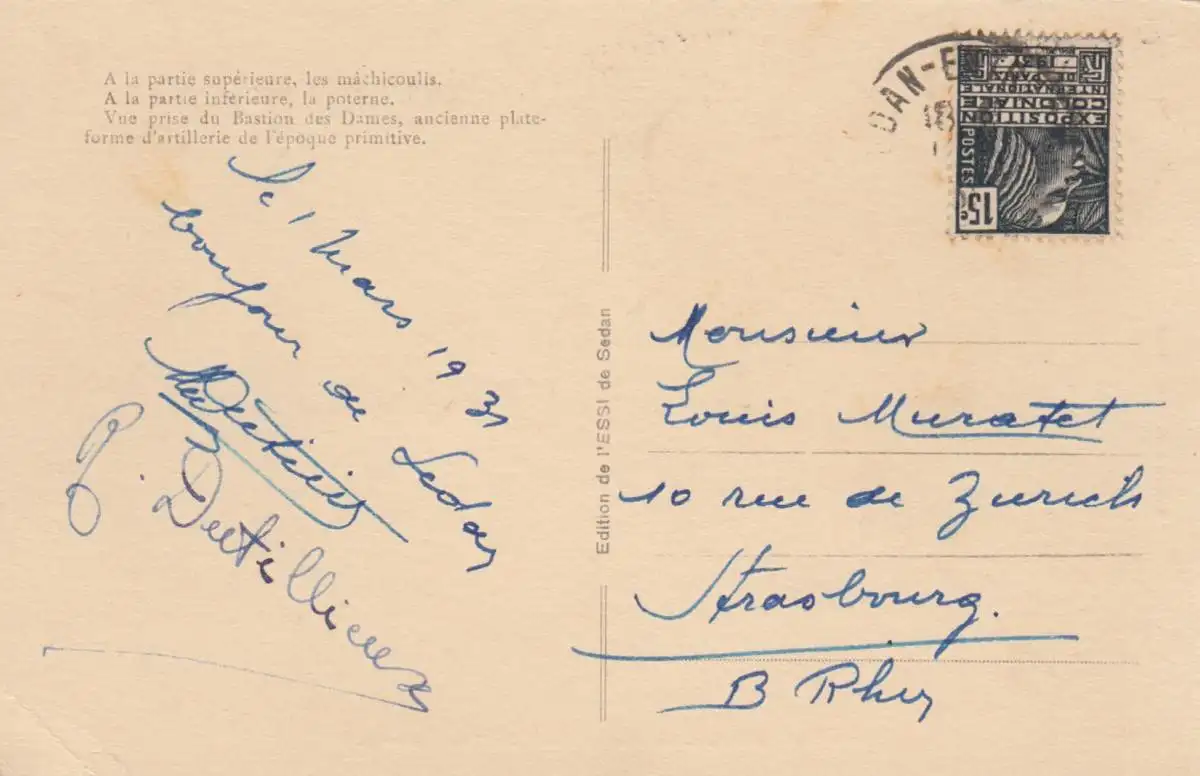 A la partie supérieure, les mâchicoulis.
A la partie inférieure, la poterne.
Vue prise du Bastion des Dames, ancienne plate-
forme d'artillerie de l'époque primitive.
1 Mars 193
bonjour de Sedan
Edition de l'ESSI de Sedan
DAN-EN
EXPOSITION
COLONIALE
INTERNATIONALE
PARIS
1931
POSTES
15c
Monsieur
Louis Muratet
10 rue de Zurich
Strasbourg.
B Rhin